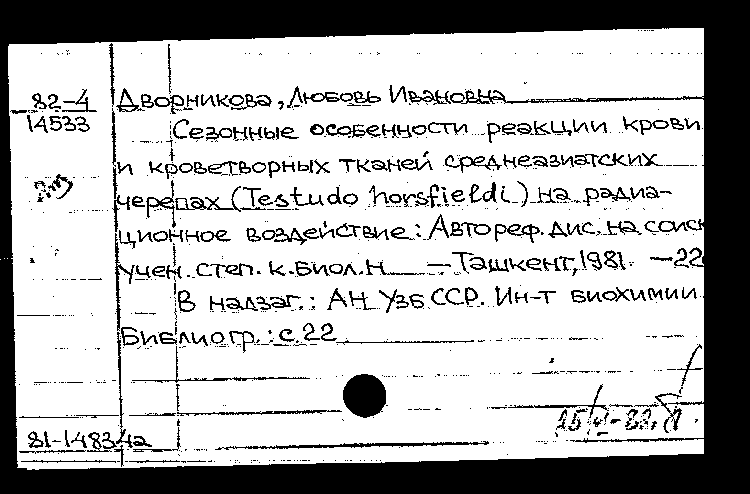 82-4
14533
Дворникова, Любовь Ивановна
Сезонные особенности реакции крови
и кроветворных тканей среднеазиатских
черепах (Testudo horsfieldi) на радиа-
ционное воздействие: Автореф. дис. на соиск
учен. степ. к. биол. н. — Ташкент, 1981. — 22
В надзаг.: АН УзбССР. Ин-т биохимии.
Библиогр.: с. 22.
81-14834а